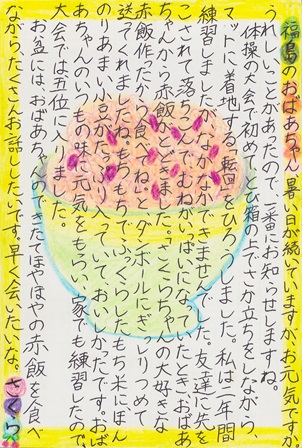 福島のおばあちゃん、暑い日が続いていますが、お元気ですか。
うれしいことがあったので、一番にお知らせしますね。
体操の大会で初めて、とび箱の上でさか立ちをしながら、
マットに着地する「転回」をひろうしました。私は一年間
練習しましたが、なかなかできませんでした。友達に先を
こされて落ちこんで、むねがいっぱいになったとき、おばあ
ちゃんから赤飯がとどきました。「さくらちゃんの大好きな
赤飯作ったから食べてね」と、ダンボールにぎっしりつめて
送ってくれましたね。もちもちでふっくらしたもち米に、ほん
のりあまい小豆がたっぷり入っていて、おいしかったです。おば
あちゃんのいつもの味に元気をもらい、家でも練習したので、
大会では五位に入りました。
お盆には、おばあちゃんのできたてほやほやの赤飯を食べ
ながら、たくさんお話ししたいです。早く会いたいな。さくら